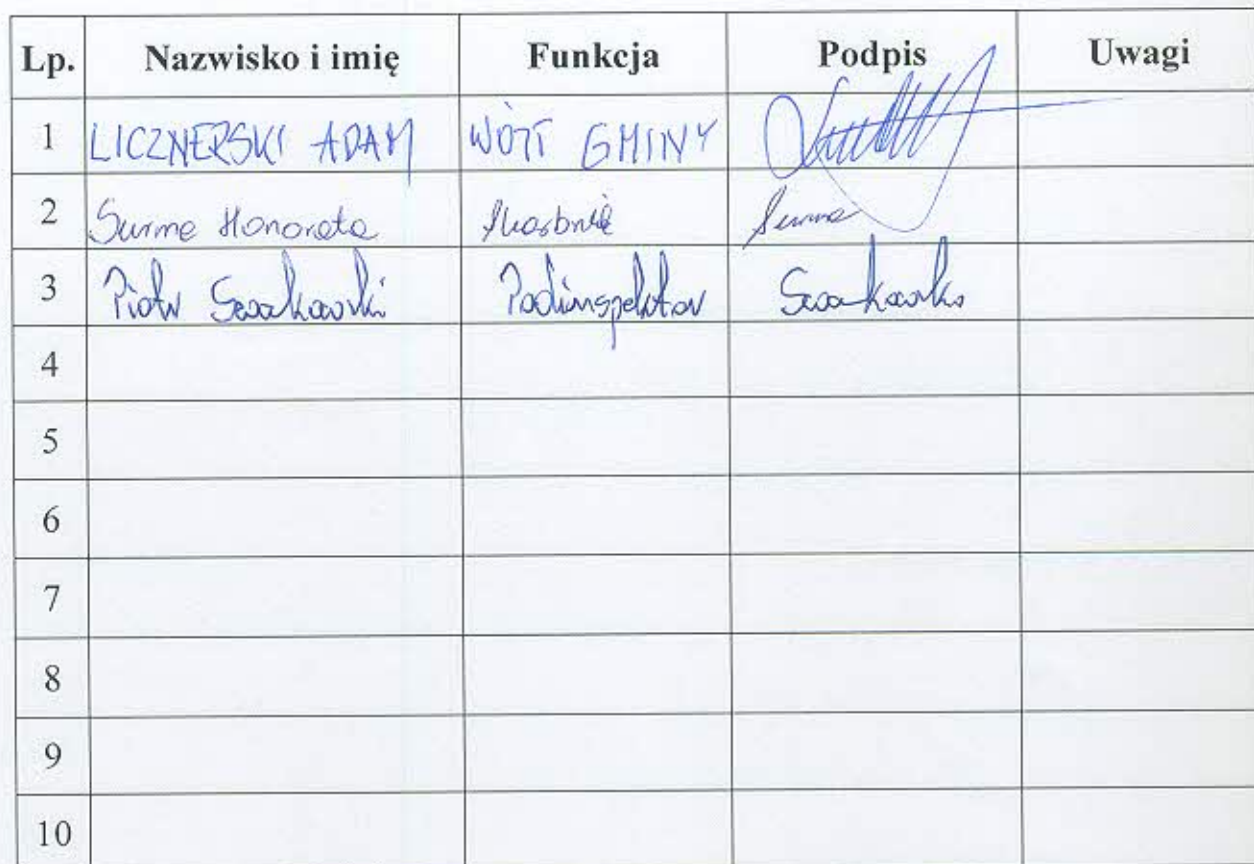 Lp. Nazwisko i imię Funkcja Podpis Uwagi
1 LICZNERSKI ADAM WÓJT GMINY
2 Surma Honorata Skarbnik Surma
3 Piotr Podinspektor
4
5
6
7
8
9
10